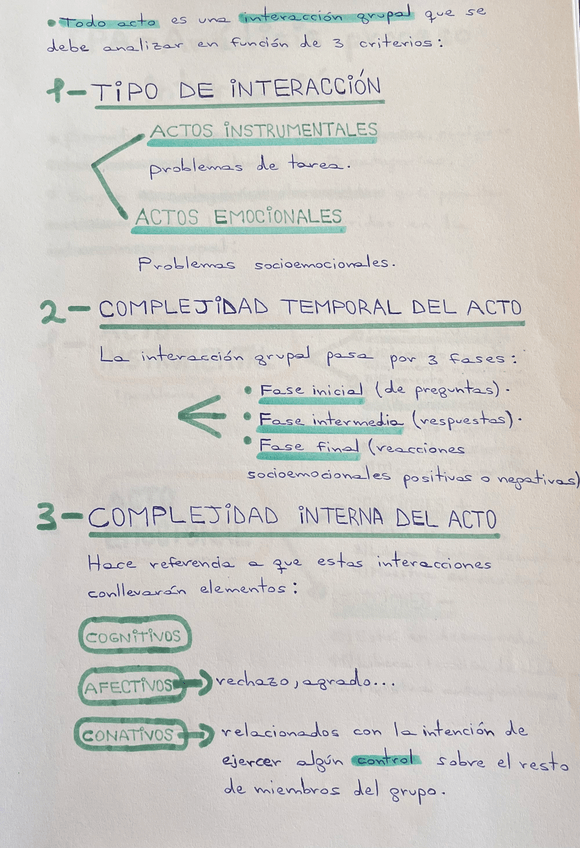 • Todo acto es una interacción grupal que se
debe analizar en función de 3 criterios:
1- TIPO DE INTERACCIÓN
ACTOS INSTRUMENTALES
problemas de tarea.
ACTOS EMOCIONALES
Problemas socioemocionales.
2- COMPLEJIDAD TEMPORAL DEL ACTO
La interacción grupal pasa por 3 fases:
• Fase inicial (de preguntas).
• Fase intermedia (respuestas).
• Fase final (reacciones
socioemocionales positivas o negativas)
3- COMPLEJIDAD INTERNA DEL ACTO
Hace referencia a que estas interacciones
conllevarán elementos:
COGNITIVOS
AFECTIVOS → rechazo, agrado...
CONATIVOS → relacionados con la intención de
ejercer algún control sobre el resto
de miembros del grupo.